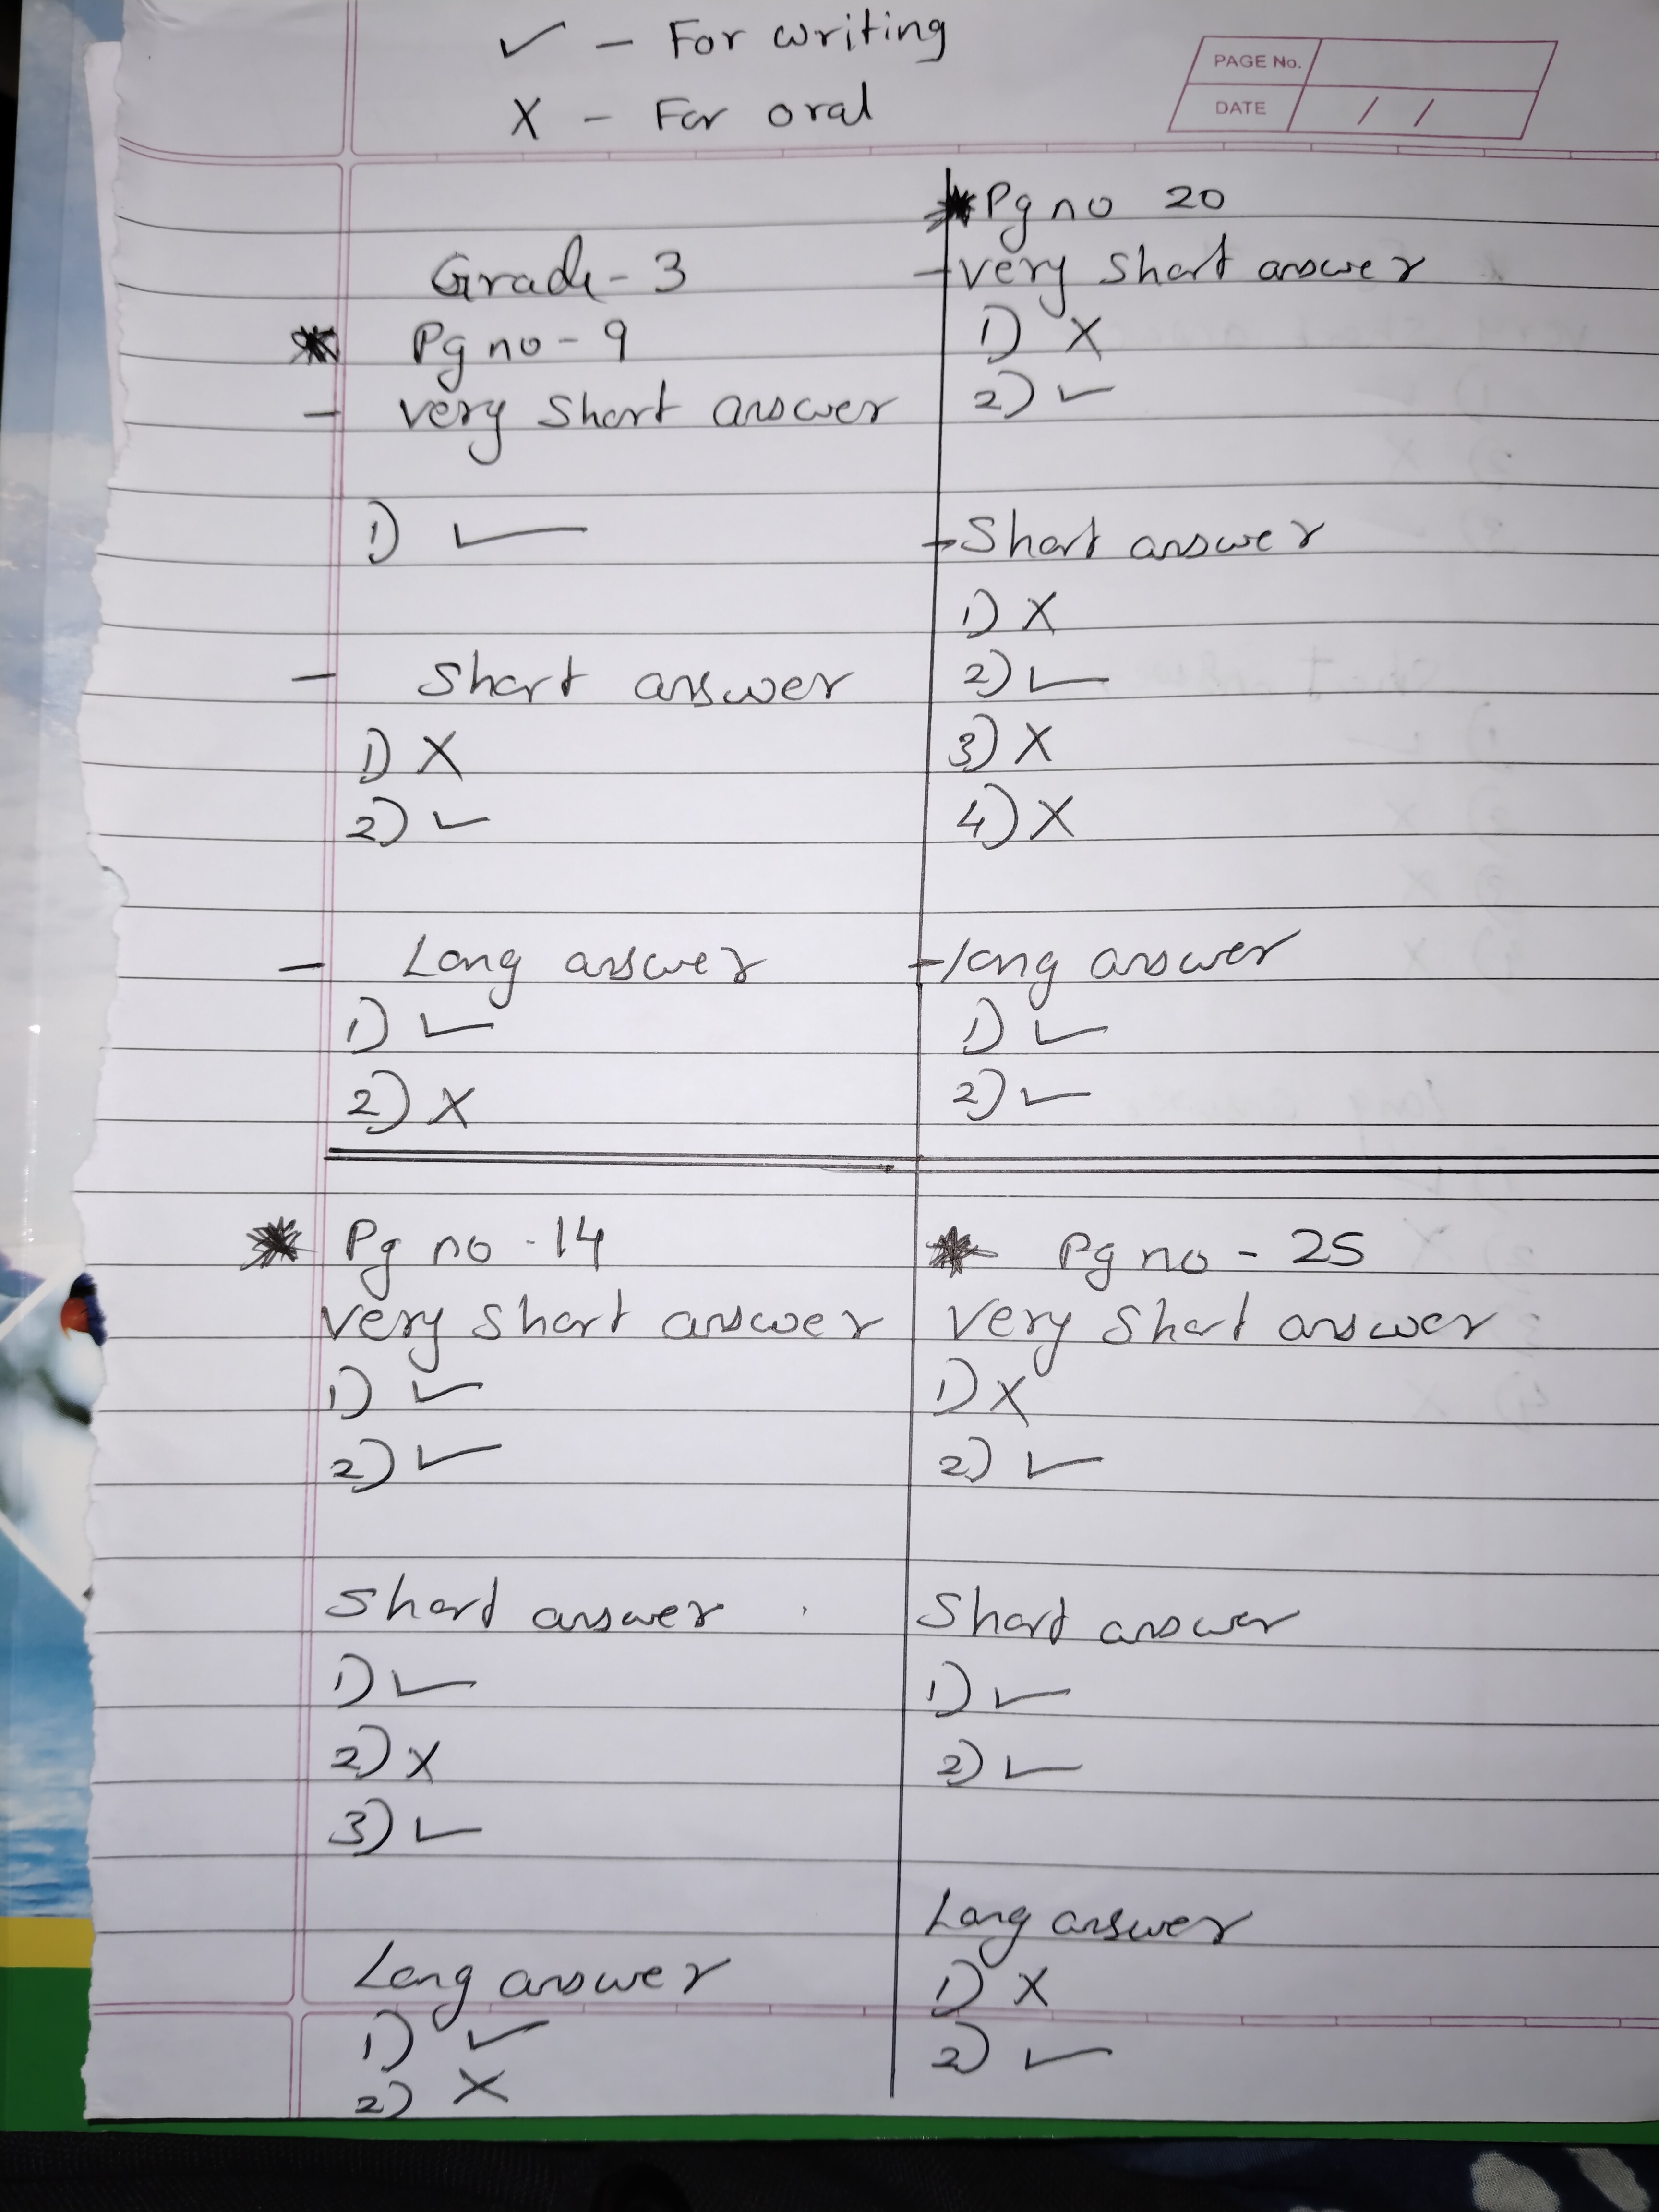 ✓ - For writing
X - For oral
PAGE No.
DATE / /
Grade - 3
* Pg no - 9
- very short answer
1) ✓
- Short answer
1) X
2) ✓
- Long answer
1) ✓
2) X
* Pg no 20
- very short answer
1) X
2) ✓
- Short answer
1) X
2) ✓
3) X
4) X
- long answer
1) ✓
2) ✓
* Pg no - 14
very short answer
1) ✓
2) ✓
Short answer
1) ✓
2) X
3) ✓
Long answer
1) ✓
2) X
* Pg no - 25
Very Short answer
1) X
2) ✓
Short answer
1) ✓
2) ✓
Long answer
1) X
2) ✓